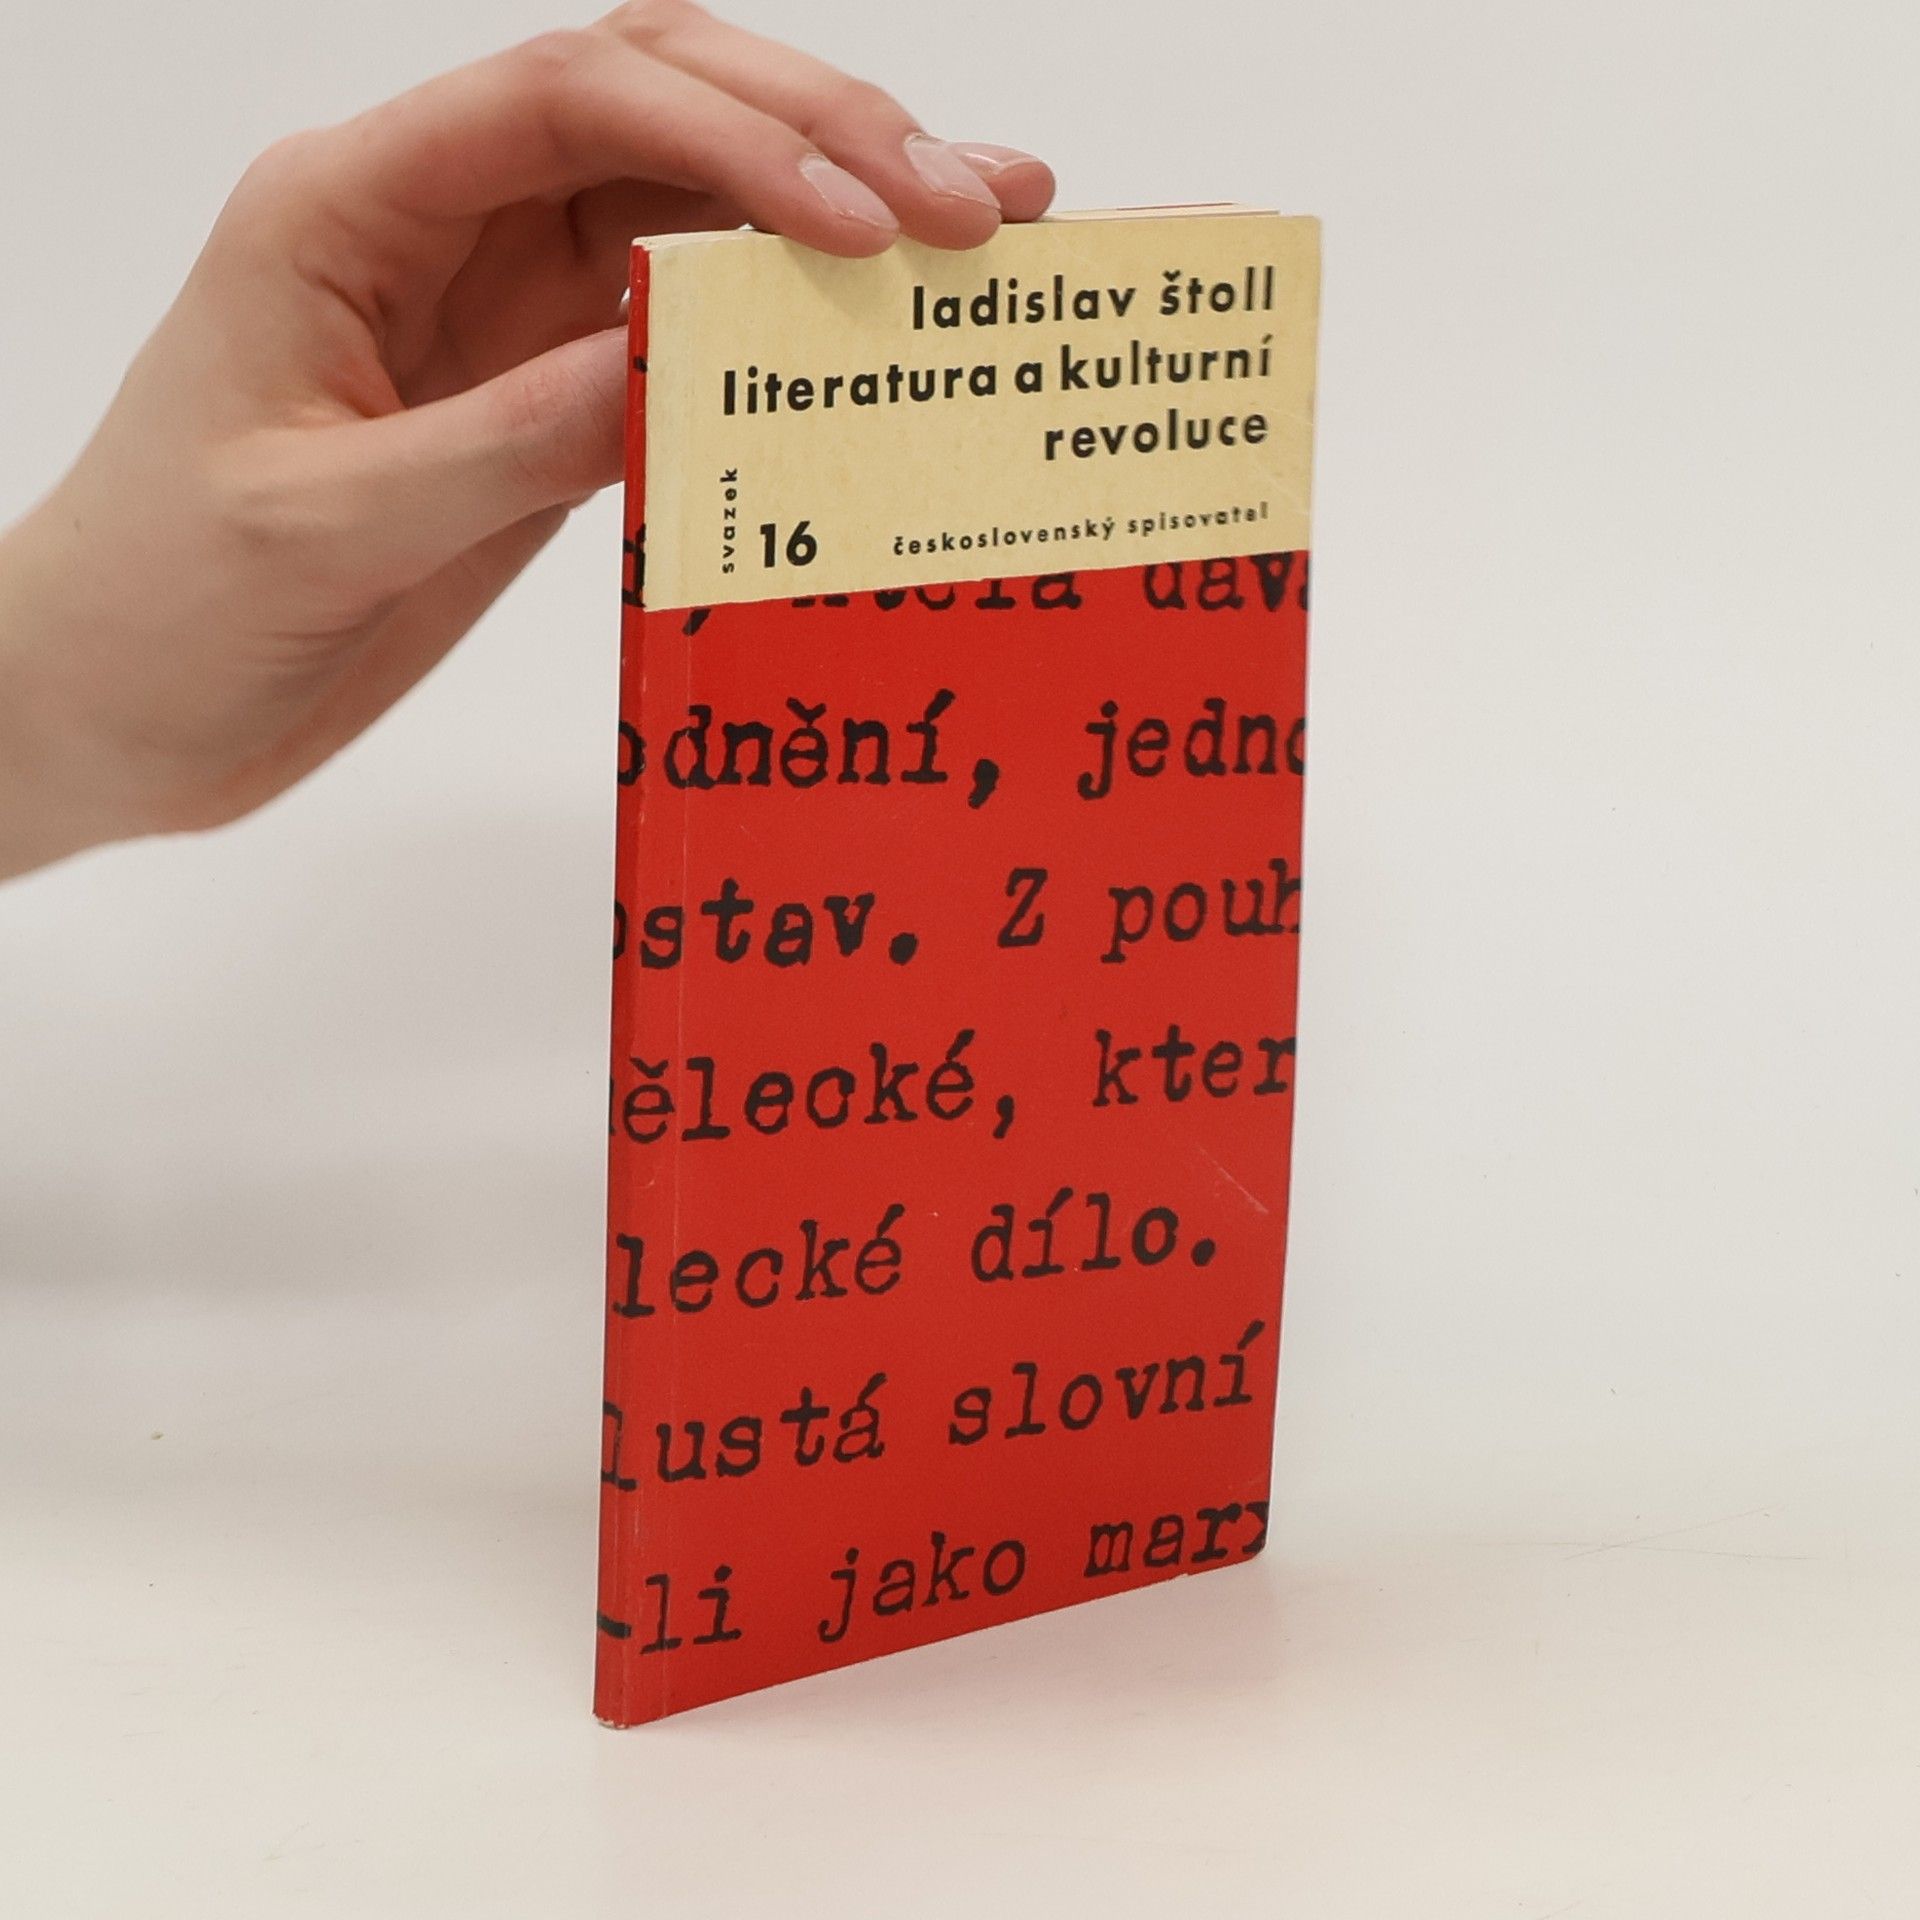 ladislav štoll
literatura a kulturní
revoluce
svazek
16
československý spisovatel
která dáv
odnění, jedno
ostav. Z pouh
ělecké, kter
lecké dílo.
lustá slovní
-li jako marx